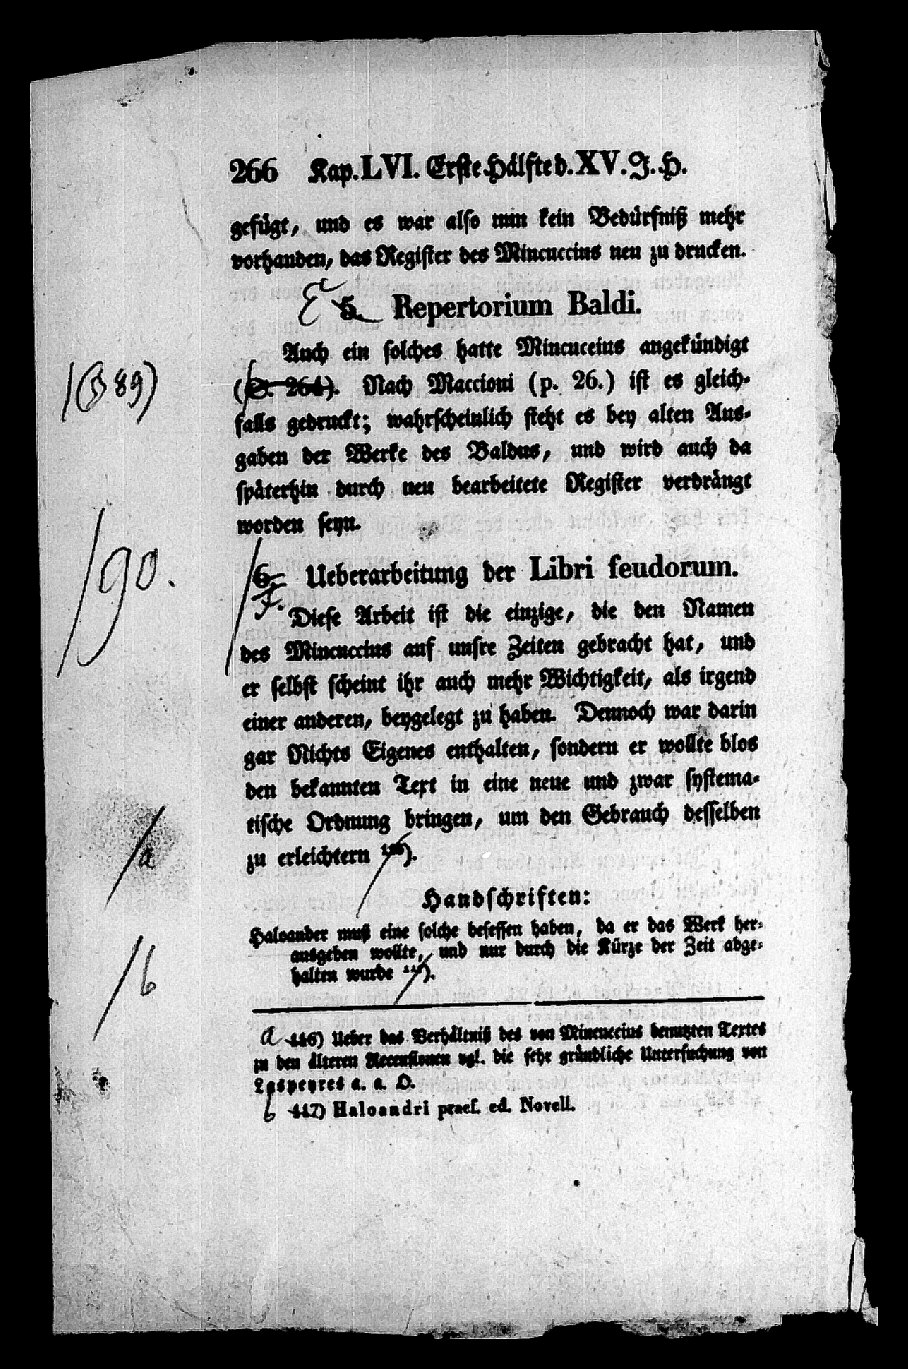 266 Kap. LVI. Erste Hälfte d. XV. J. H.
gefügt, und es war also nun kein Bedürfniß mehr
vorhanden, das Register des Mincuccius neu zu drucken.
E 5. Repertorium Baldi.
Auch ein solches hatte Mincuccius angekündigt
/(§ 89)
(S. 264). Nach Maccioni (p. 26.) ist es gleich-
falls gedruckt; wahrscheinlich steht es bey alten Aus-
gaben der Werke des Baldus, und wird auch da
späterhin durch neu bearbeitete Register verdrängt
worden seyn.
/90.
6. Ueberarbeitung der Libri feudorum.
F.
Diese Arbeit ist die einzige, die den Namen
des Mincuccius auf unsre Zeiten gebracht hat, und
er selbst scheint ihr auch mehr Wichtigkeit, als irgend
einer anderen, beygelegt zu haben. Dennoch war darin
gar Nichts Eigenes enthalten, sondern er wollte blos
den bekannten Text in eine neue und zwar systema-
tische Ordnung bringen, um den Gebrauch desselben
/a
zu erleichtern 116).
Handschriften:
Haloander muß eine solche besessen haben, da er das Werk her-
ausgeben wollte, und nur durch die Kürze der Zeit abge-
/b
halten wurde 117).
a 116) Ueber das Verhältniß des von Mincuccius benutzten Textes
zu den älteren Recensionen vgl. die sehr gründliche Untersuchung von
Laspeyres a. a. O.
b 117) Haloandri praef. ed. Novell.